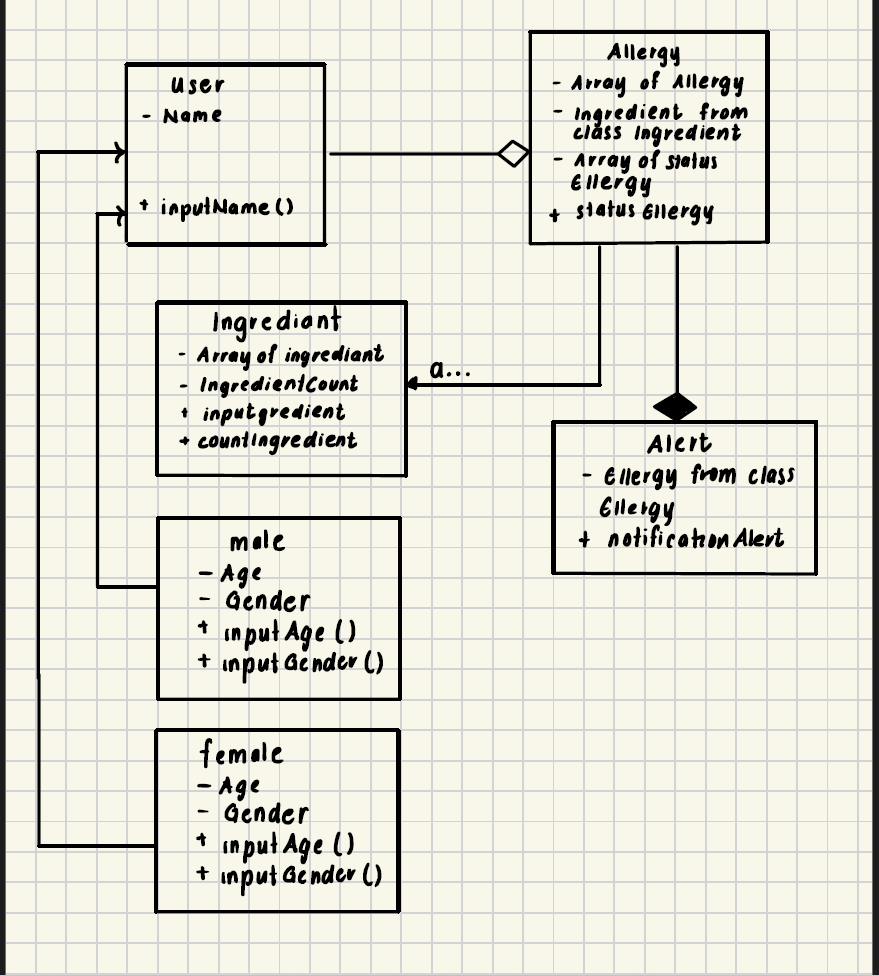 User
- Name
+ inputName()
Allergy
- Array of Allergy
- Ingredient from
class Ingredient
- Array of status
Ellergy
+ status Ellergy
Ingrediant
- Array of ingrediant
- IngredientCount
+ inputgredient
+ countIngredient
a...
Alert
- Ellergy from class
Ellergy
+ notificationAlert
male
- Age
- Gender
+ inputAge()
+ inputGender()
female
- Age
- Gender
+ inputAge()
+ inputGender()